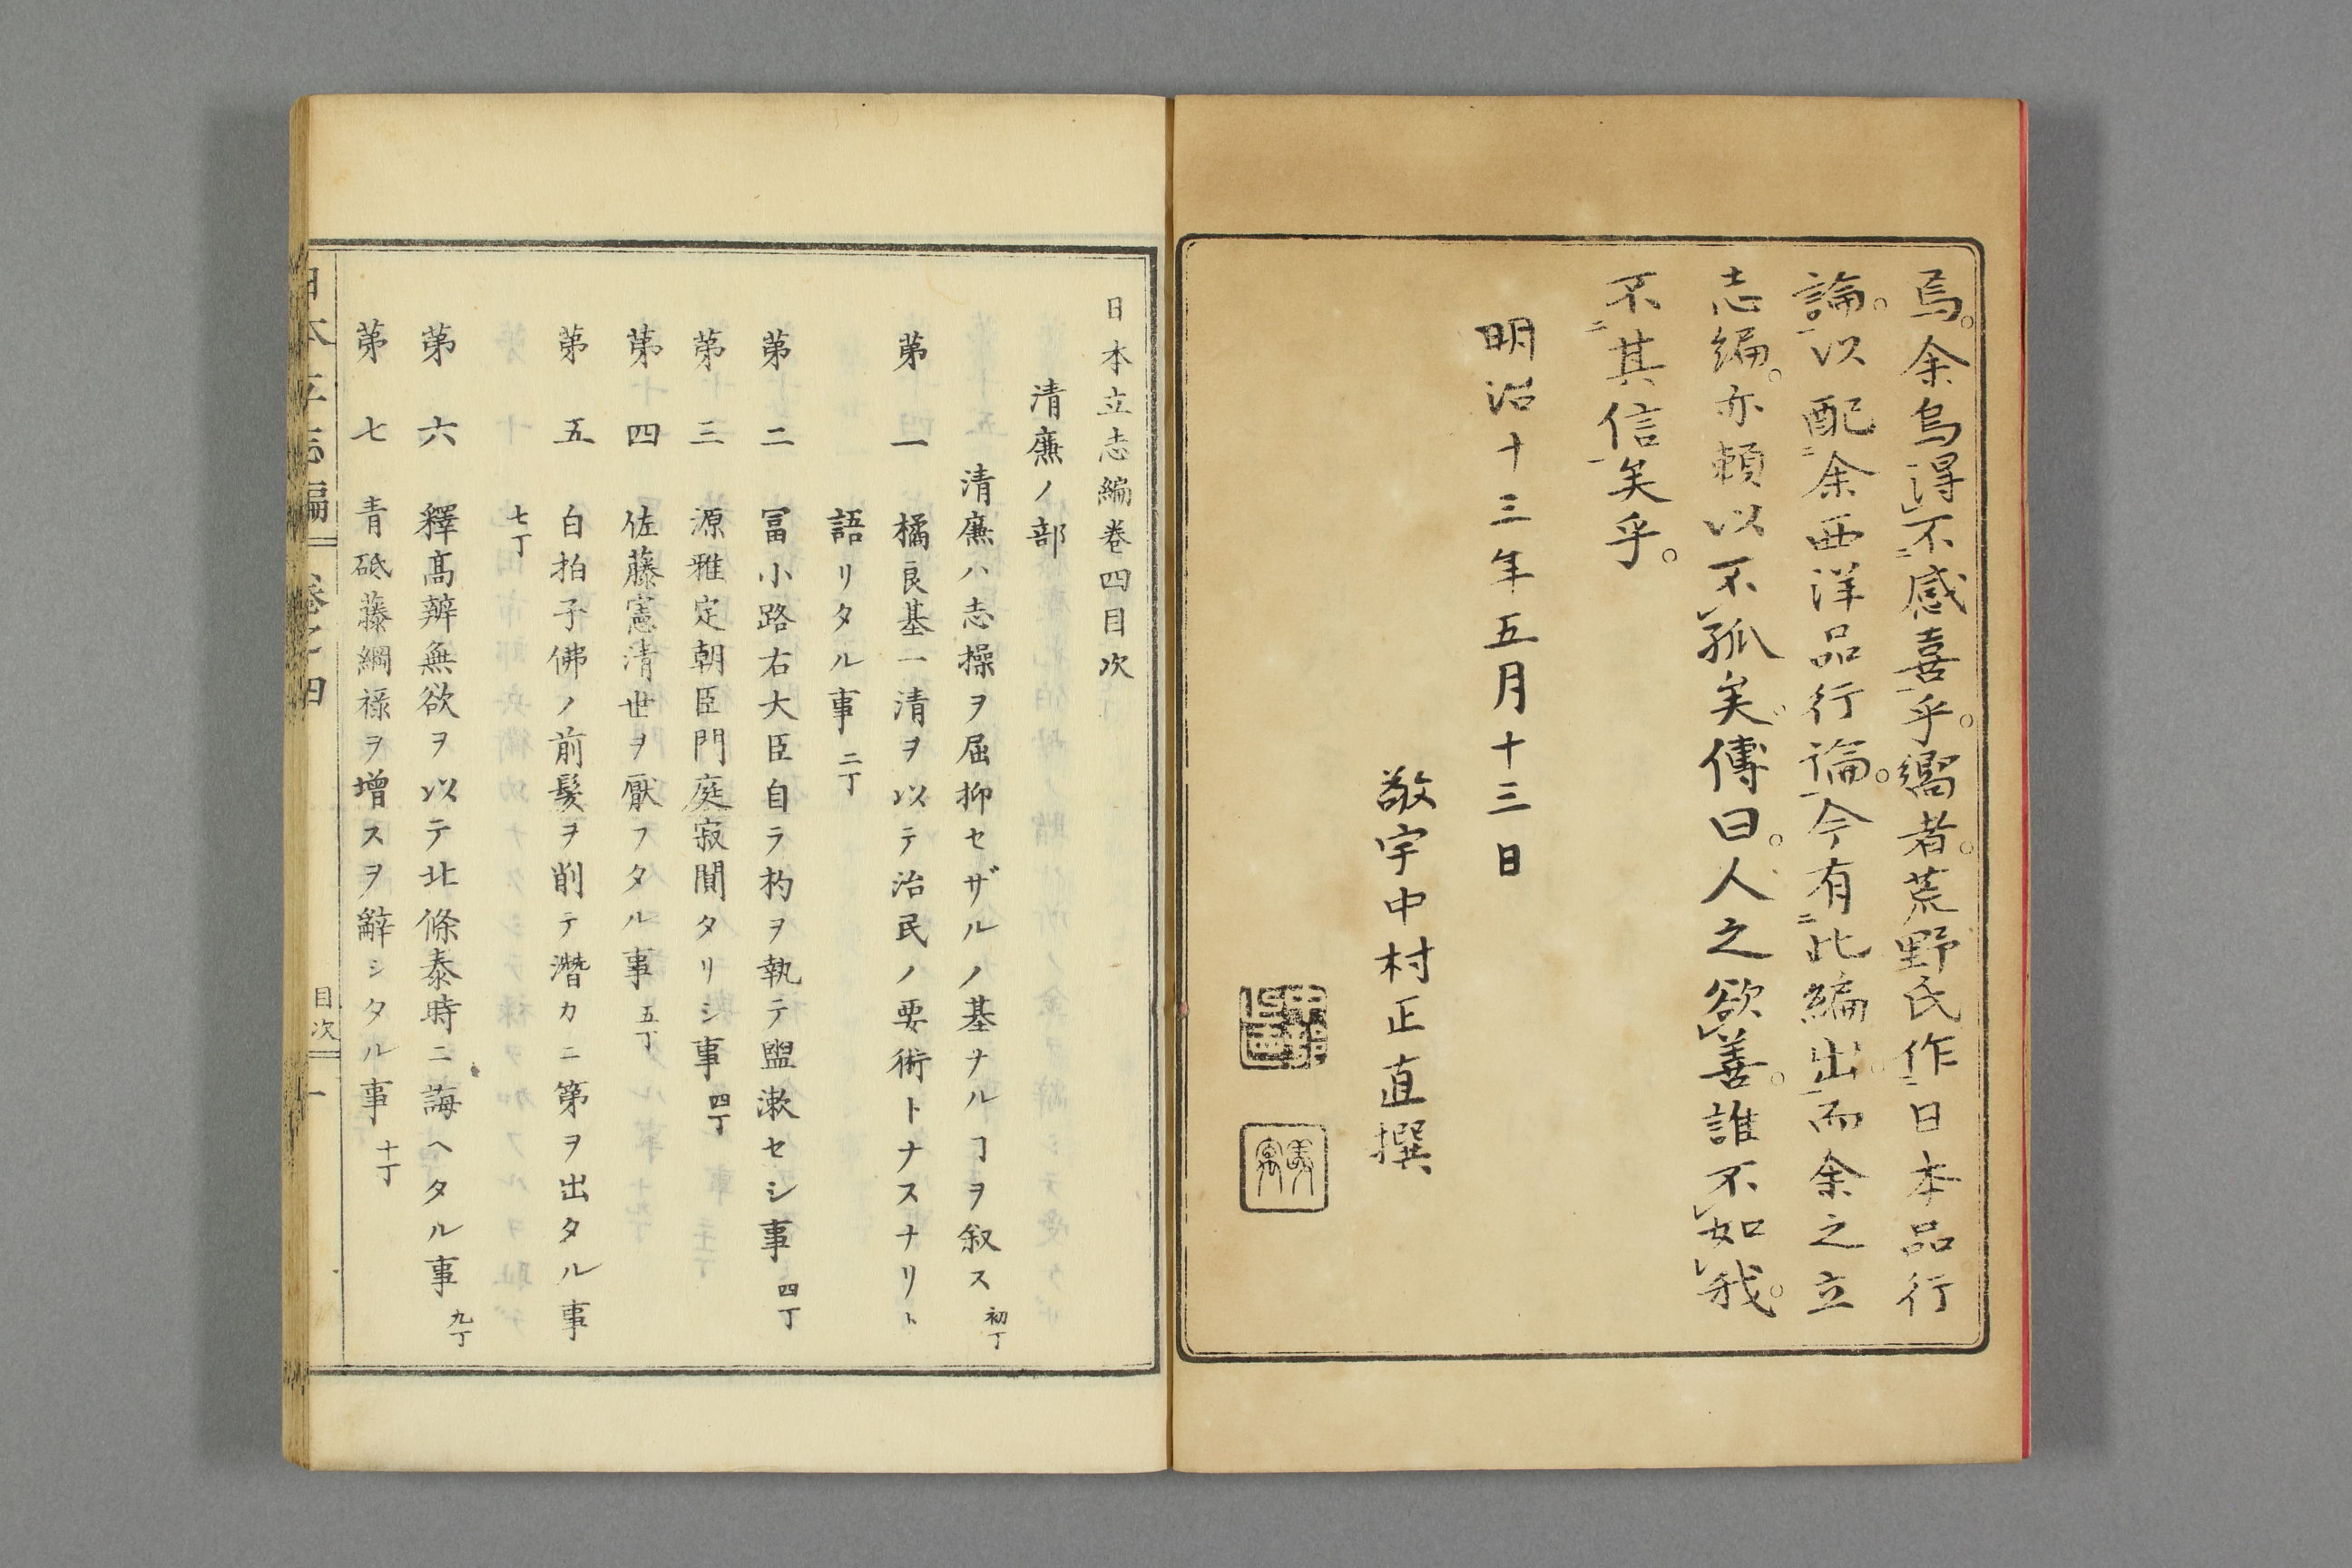 焉。余烏得不感喜乎。嚮者。荒野氏作日本品行
論。以配余西洋品行論。今有此編出。而余之立
志編。亦頼以不孤矣。傳曰。人之欲善。誰不如我。
不其信矣乎。
明治十三年五月十三日
敬宇中村正直撰
日本立志編巻四目次
清廉ノ部
清廉ハ志操ヲ屈抑セザルノ基ナルヿヲ叙ス 初丁
第一 橘良基一清ヲ以テ治民ノ要術トナスナリト
語リタル事 二丁
第二 冨小路右大臣自ラ杓ヲ執テ盥漱セシ事 四丁
第三 源雅定朝臣門庭寂閴タリシ事 四丁
第四 佐藤憲清世ヲ厭フタル事 五丁
第五 白拍子佛ノ前髪ヲ削テ潜カニ第ヲ出タル事
七丁
第六 釋髙辨無欲ヲ以テ北條泰時ニ誨ヘタル事 九丁
第七 青砥藤綱禄ヲ増スヲ辭シタル事 十丁
日本立志編 巻之四 目次 一